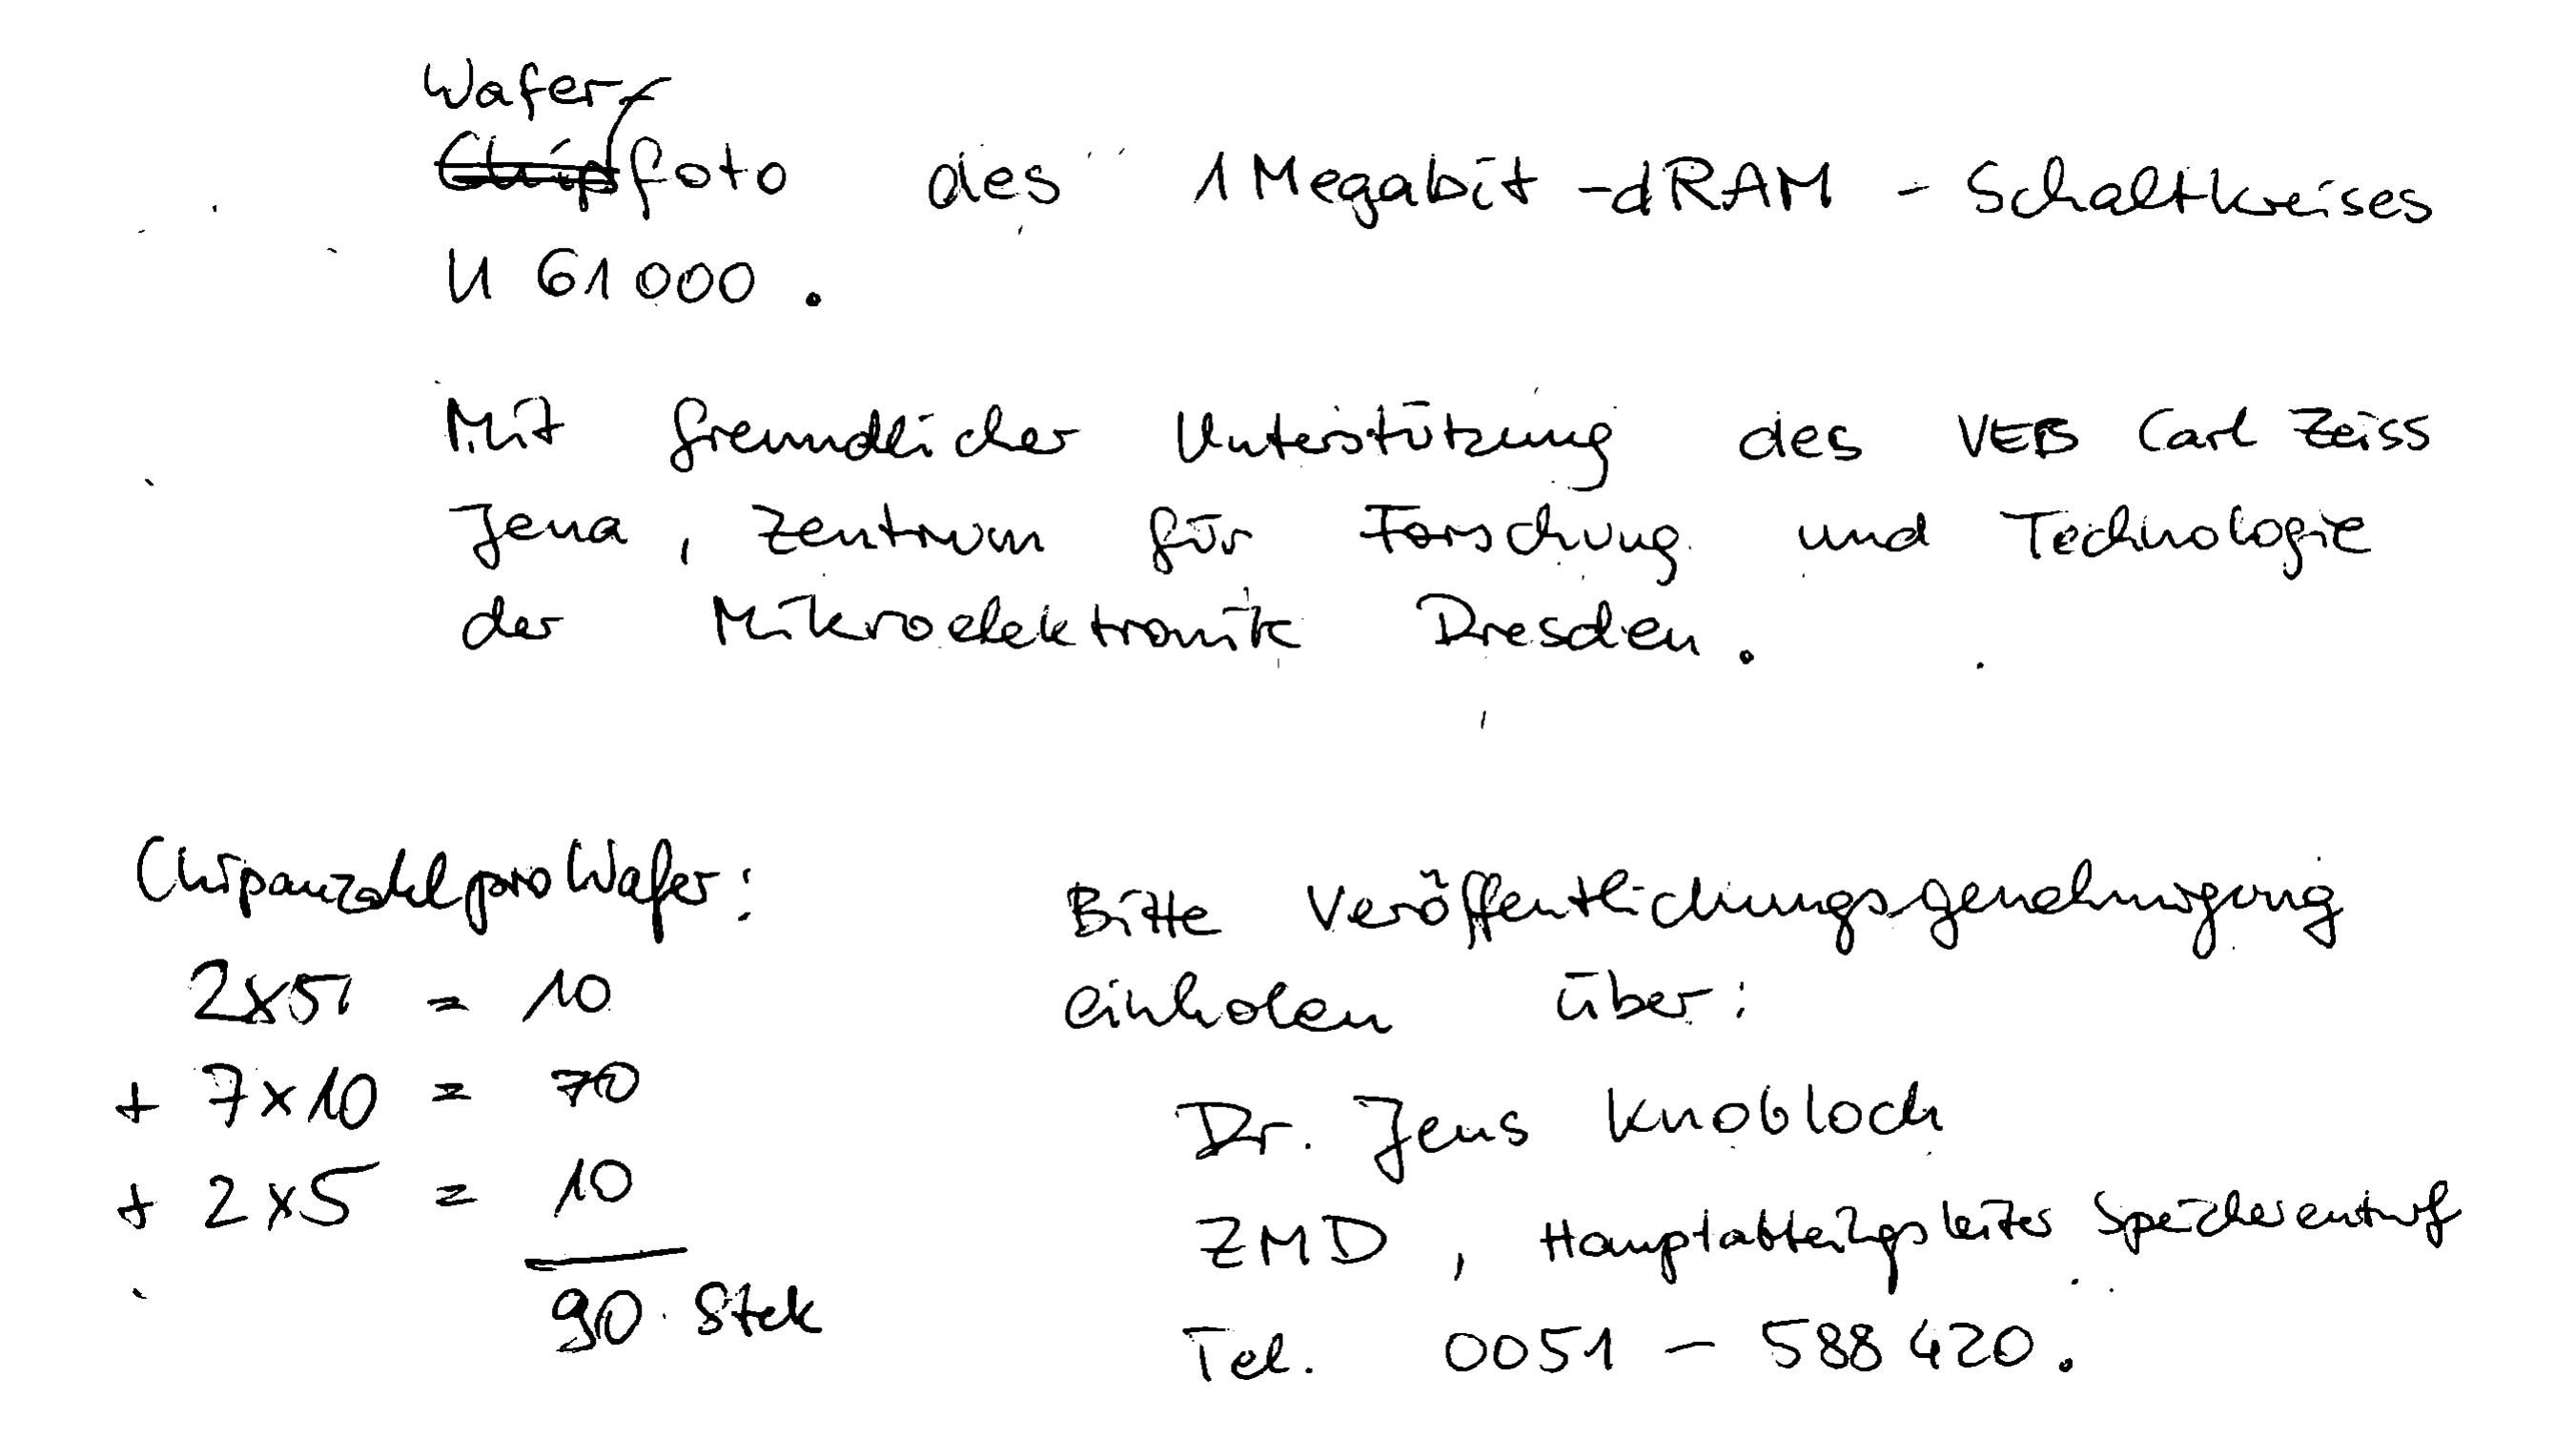 Wafer-
Chipfoto des 1 Megabit-dRAM-Schaltkreises
U 61000.
Mit freundlicher Unterstützung des VEB Carl Zeiss
Jena, Zentrum für Forschung und Technologie
der Mikroelektronik Dresden.
Chipanzahl pro Wafer:
2x5 = 10
+ 7x10 = 70
+ 2x5 = 10
90 Stck
Bitte Veröffentlichungsgenehmigung
einholen über:
Dr. Jens Knobloch
ZMD, Hauptabteilgsleiter Speicherentwurf
Tel. 0051 - 588 420.